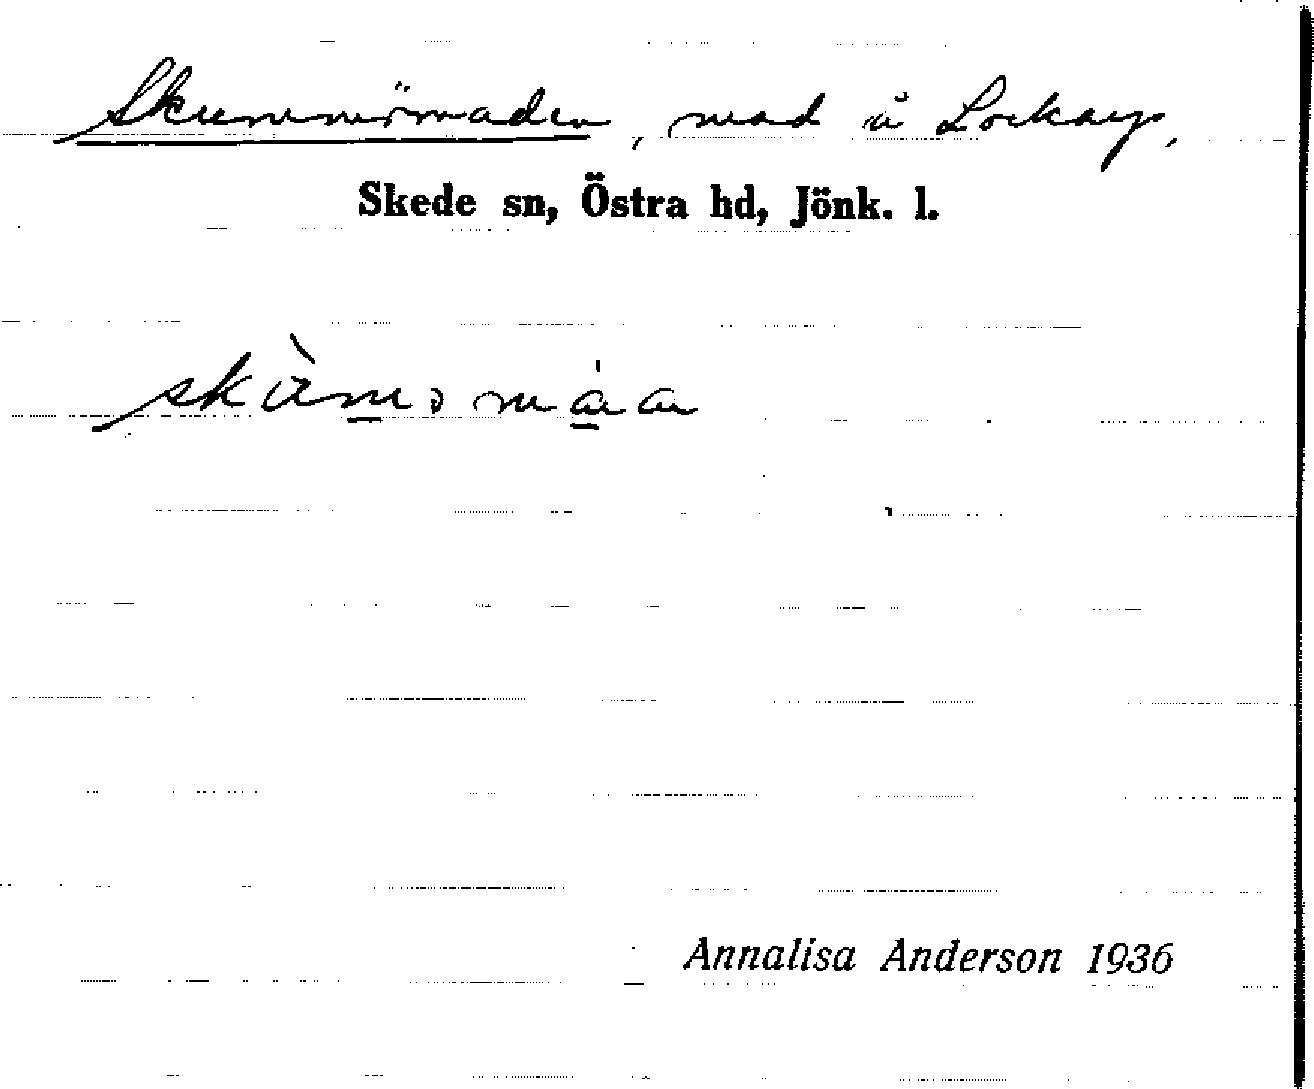 Skummörmaden, mad å Lockarp,
Skede sn, Östra hd, Jönk. l.
Annalisa Anderson 1936